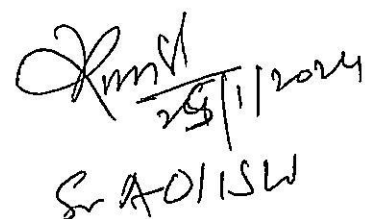 25/1/2024
Sr AO/ISW